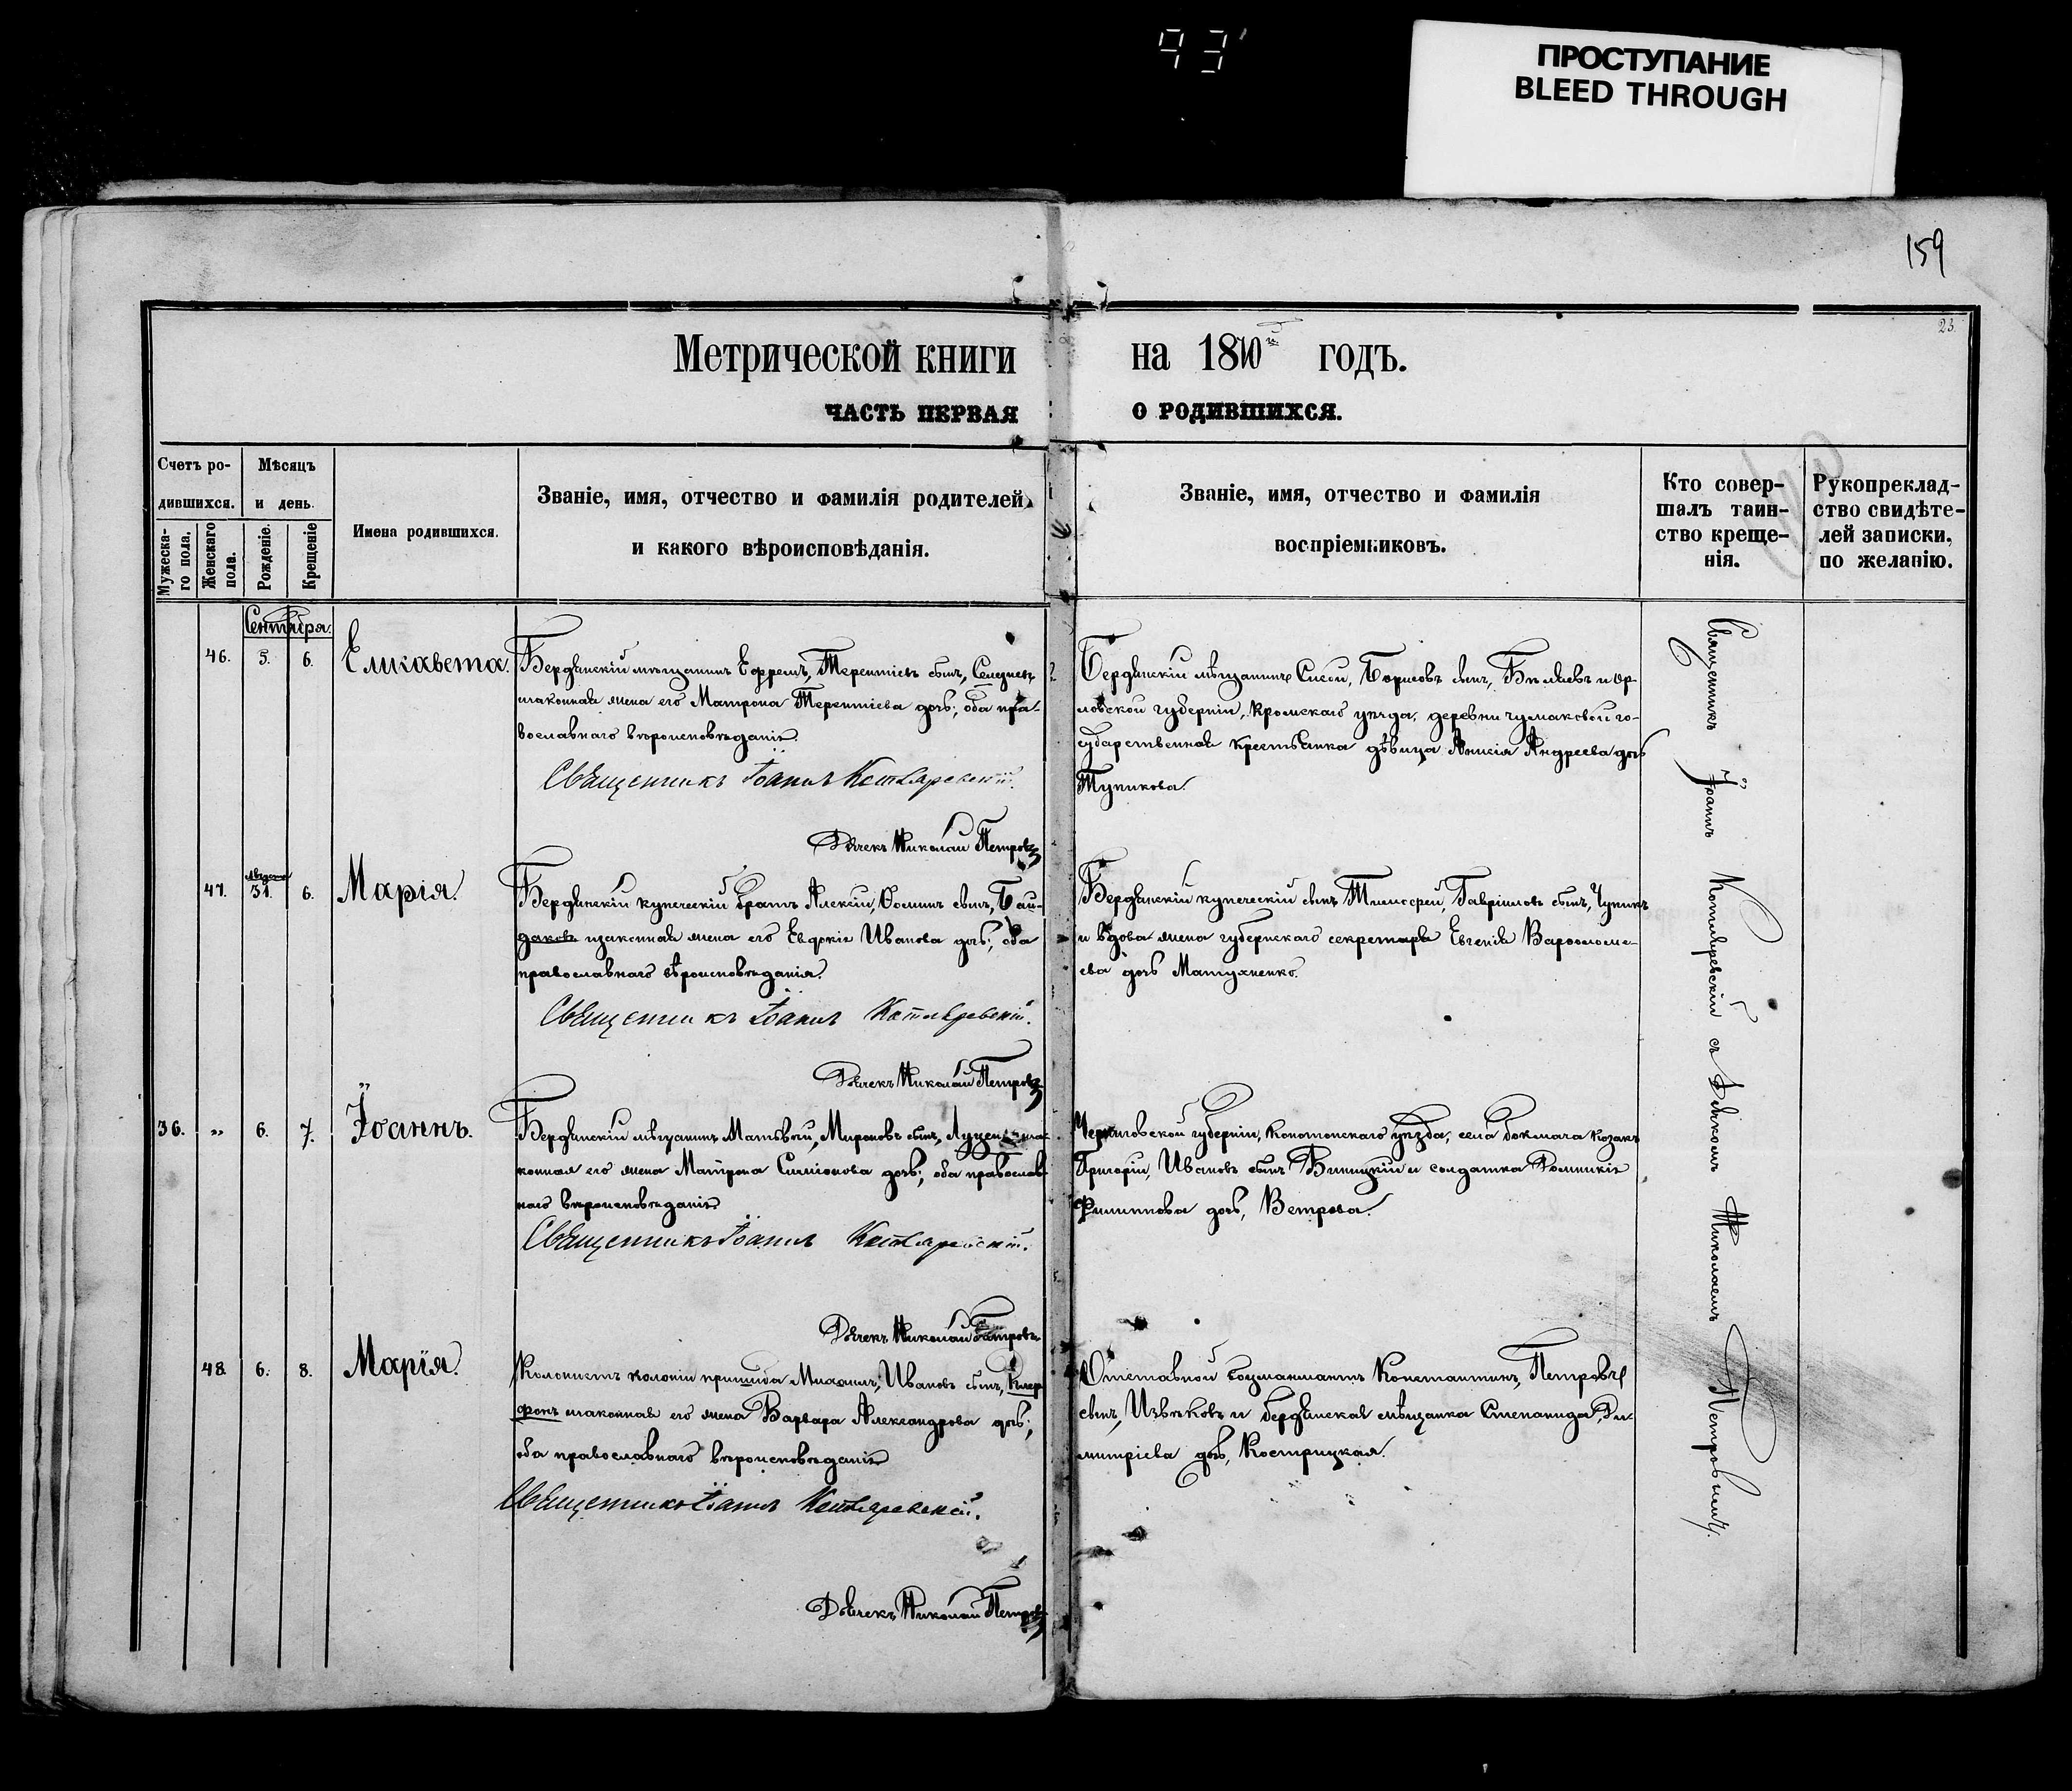 93
ПРОСТУПАНИЕ
BLEED THROUGH
159
23.
Метрической книги на 1870 годъ.
ЧАСТЬ ПЕРВАЯ О РОДИВШИХСЯ.
Счетъ ро-
дившихся.
Мужеска-
го пола.
Женскаго
пола.
Мѣсяцъ
и день.
Рожденіе.
Крещеніе
Имена родившихся.
Званіе, имя, отчество и фамилія родителей,
и какого вѣроисповѣданія.
Званіе, имя, отчество и фамилія
воспріемниковъ.
Кто совер-
шалъ таин-
ство креще-
нія.
Рукоприклад-
ство свидѣте-
лей записки,
по желанію.
Сентября.
46. 5. 6. Елисавета.
Бердянскій мѣщанинъ Ефремъ, Терентіевъ сынъ, Селезневъ
и законная жена его Матрона Терентіева дочь; оба пра-
вославнаго вѣроисповѣданія.
Священникъ Іоаннъ Котляревскій.
Дьячекъ Николай Петровъ
Бердянскій мѣщанинъ Борисовъ сынъ, Бѣляевъ и Ор-
ловской губерніи, Кромскаго уѣзда, деревни Чумаковой го-
сударственная крестьянка дѣвица Андреева дочь
Тупикова.
47. Августа 31. 6. Марія.
Бердянскій купеческій братъ Алексій, Ѳоминъ сынъ, Бай-
даковъ и законная жена его Евдокія Иванова дочь; оба
православнаго вѣроисповѣданія.
Священникъ Іоаннъ Котляревскій.
Дьячекъ Николай Петровъ
Бердянскій купеческій сынъ Тимоѳей, Гавріиловъ сынъ,
и вдова жена губернскаго секретаря Евгенія Варѳоломе-
ева дочь Матухненко.
36. „ 6. 7. Іоаннъ.
Бердянскій мѣщанинъ Матѳей, Мироновъ сынъ, и за-
конная его жена Матрона Симіонова дочь; оба православ-
наго вѣроисповѣданія
Священникъ Іоаннъ Котляревскій.
Дьячекъ Николай Петровъ
Черниговской губерніи, Конотопскаго уѣзда, села Бокмача козакъ
Григорій, Ивановъ сынъ и солдатка Домникія
Филиппова дочь, Ветрова.
48. 6. 8. Марія.
Колонистъ колоніи Пришиба Михаилъ, Ивановъ сынъ,
и законная его жена Варвара Александрова дочь;
оба православнаго вѣроисповѣданія
Священникъ Іоаннъ Котляревскій.
Дьячекъ Николай Петровъ
Отставной Константинъ, Петровъ
сынъ, Извѣковъ и бердянская мѣщанка Степанида, Ди-
митріева дочь, Кострицкая.
Священникъ Іоаннъ Котляревскій съ Дьячкомъ Николаемъ Петровымъ.